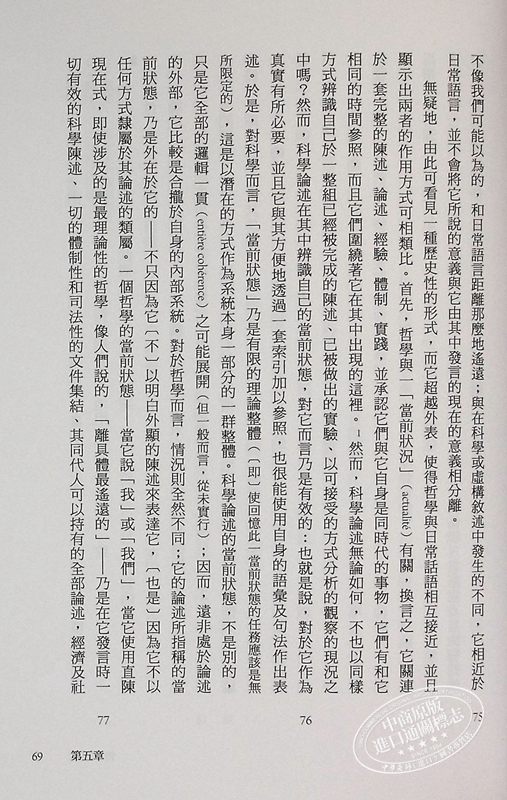 不像我們可能以為的，和日常語言距離那麼地遙遠；與在科學或虛構敘述中發生的不同，它相近於
日常語言，並不會將它所說的意義與它由其中發言的現在的意義相分離。
無疑地，由此可看見一種歷史性的形式，而它超越外表，使得哲學與日常話語相互接近，並且
顯示出兩者的作用方式可相類比。首先，哲學與一「當前狀況」（actualité）有關，換言之，它關連
於一套完整的陳述、論述、經驗、體制、實踐，並承認它們與它自身是同時代的事物，它們有和它
相同的時間參照，而且它們圍繞著它在其中出現的這裡。然而，科學論述無論如何，不也以同樣
方式辨識自己於一整組已經被完成的陳述、已被做出的實驗、以可接受的方式分析的觀察的現況之
中嗎？然而，科學論述在其中辨識自己的當前狀態，對它而言乃是有效的：也就是說，對於它作為
真實有所必要，並且它與其方便地透過一套索引加以參照，也很能使用自身的語彙及句法作出表
述。於是，對科學而言，「當前狀態」乃是有限的理論整體（〔即〕使回憶此一當前狀態的任務應該是無
所限定的），這是以潛在的方式作為系統本身一部分的一群整體。科學論述的當前狀態，不是別的，
只是它全部的邏輯一貫（entière cohérence）之可能展開（但一般而言，從未實行）；因而，遠非處於論述
的外部，它比較是合攏於自身的內部系統。對於哲學而言，情況則全然不同；它的論述所指稱的當
前狀態，乃是外在於它的——不只因為它〔不〕以明白外顯的陳述來表達它，〔也是〕因為它不以
任何方式隸屬於其論述的類屬。一個哲學的當前狀態——當它說「我」或「我們」，當它使用直陳
現在式，即使涉及的是最理論性的哲學，像人們說的，「離具體最遙遠的」——乃是在它發言時一
切有效的科學陳述、一切的體制性和司法性的文件集結、其同代人可以持有的全部論述，經濟及社
75
76
77
69 第五章
中商原版
進口通關標志